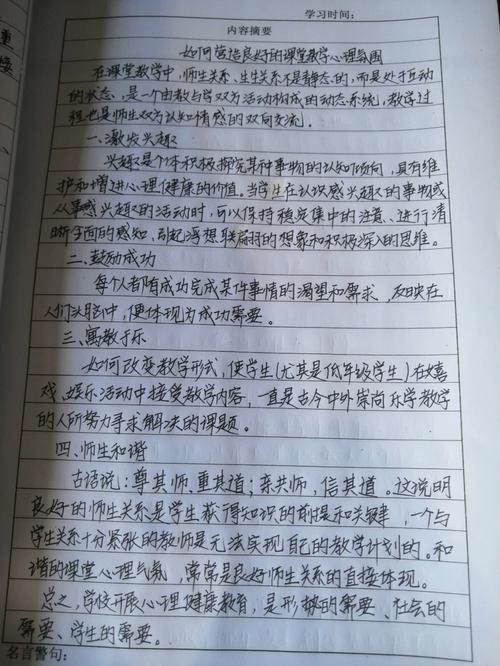 学习时间：
内容摘要
如何营造良好的课堂教学心理氛围
在课堂教学中，师生关系、生生关系不是静态的，而是处于互动
的状态，是一个由教与学双方活动构成的动态系统，教学过
程也是师生双方认知情感的双向交流。
一、激发兴趣
兴趣是个体积极探究某种事物的认知倾向，具有维
护和增进心理健康的价值。当学生在认识感兴趣的事物或
从事感兴趣的活动时，可以保持稳定集中的注意、进行清
晰全面的感知、引起浮想联翩的想象和积极深入的思维。
二、鼓励成功
每个人都有成功完成某件事情的渴望和需求，反映在
人们头脑中，便体现为成功需要。
三、寓教于乐
如何改变教学形式，使学生（尤其是低年级学生）在嬉
戏、娱乐活动中接受教学内容，一直是古今中外崇尚乐学教学
的人所努力寻求解决的课题。
四、师生和谐
古语说：尊其师、重其道；亲其师，信其道。这说明
良好的师生关系是学生获得知识的前提和关键，一个与
学生关系十分紧张的教师是无法实现自己的教学计划的。和
谐的课堂心理气氛，常常是良好师生关系的直接体现。
总之，学校开展心理健康教育，是形势的需要、社会的
需要、学生的需要。
名言警句：
重
接